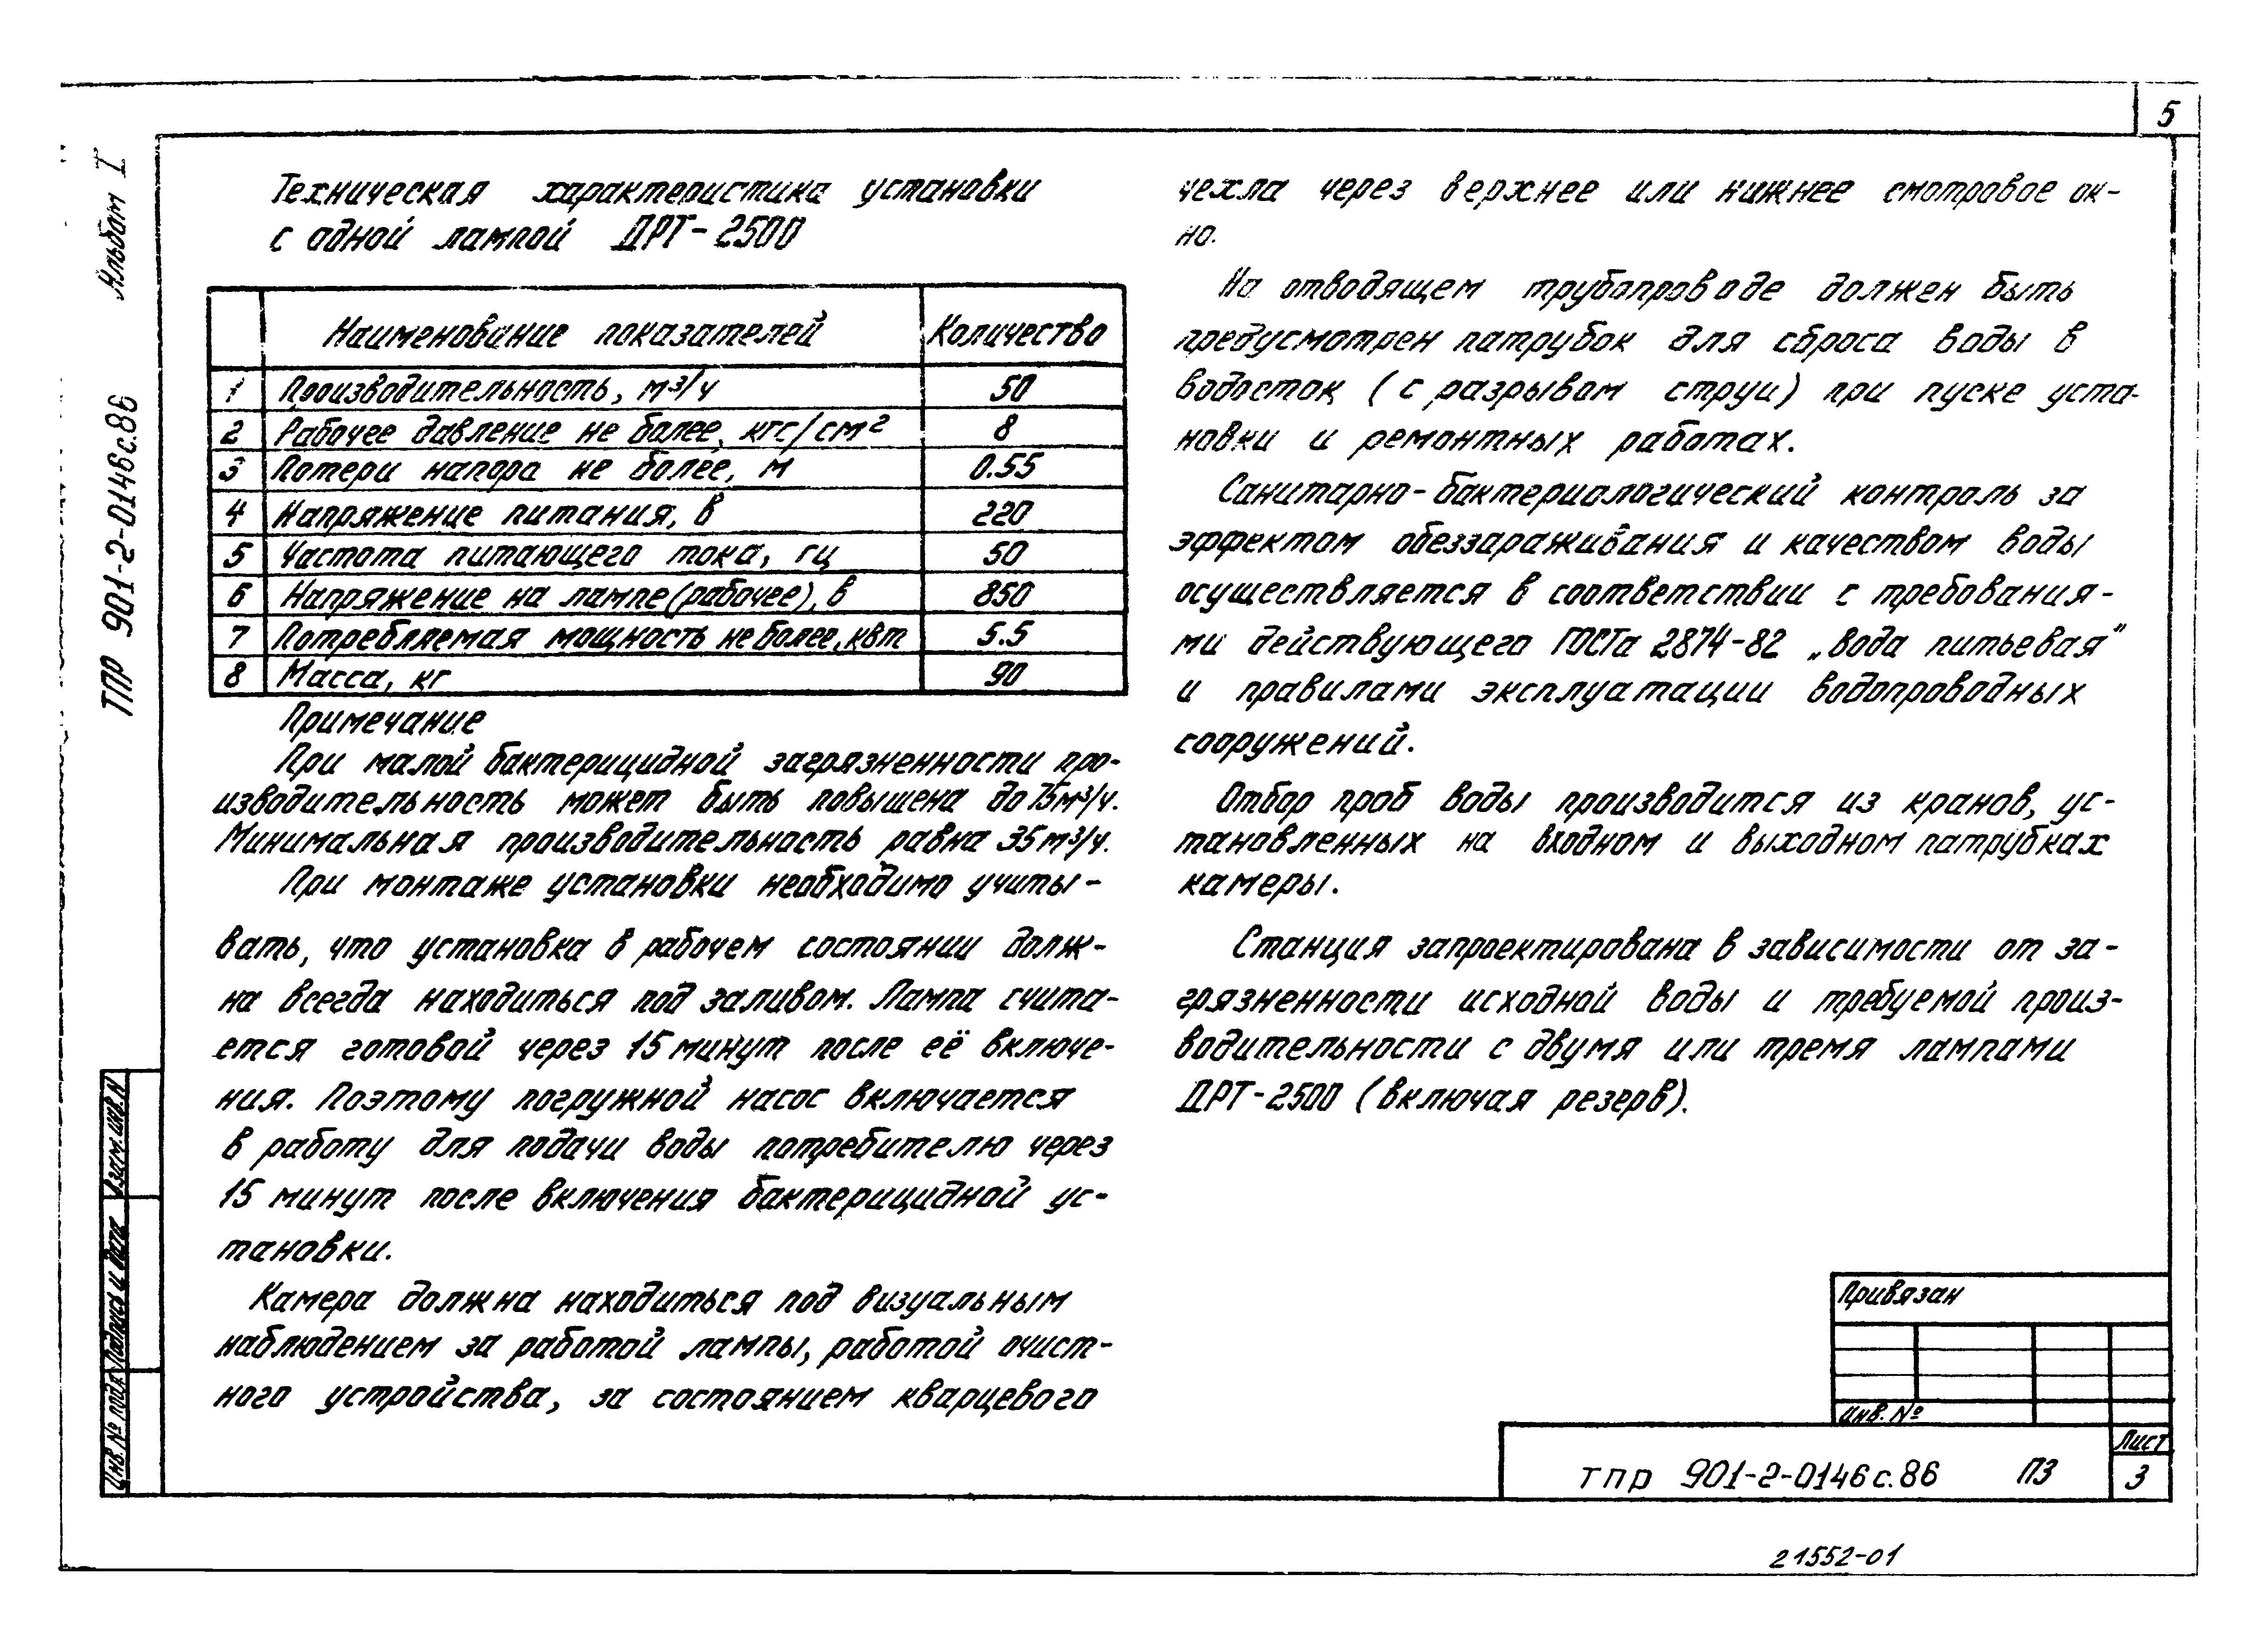 5
Альбом I
ТПР 901-2-0146с.86
Техническая характеристика установки
с одной лампой ДРТ-2500
Наименование показателей Количество
1 Производительность, м³/ч 50
2 Рабочее давление не более, кгс/см² 8
3 Потери напора не более, м 0.55
4 Напряжение питания, в 220
5 Частота питающего тока, гц 50
6 Напряжение на лампе (рабочее), в 850
7 Потребляемая мощность не более, квт 5.5
8 Масса, кг 90
Примечание
При малой бактерицидной загрязненности про-
изводительность может быть повышена до 75м³/ч.
Минимальная производительность равна 35м³/ч.
При монтаже установки необходимо учиты-
вать, что установка в рабочем состоянии долж-
на всегда находиться под заливом. Лампа счита-
ется готовой через 15 минут после её включе-
ния. Поэтому погружной насос включается
в работу для подачи воды потребителю через
15 минут после включения бактерицидной ус-
тановки.
Камера должна находиться под визуальным
наблюдением за работой лампы, работой очист-
ного устройства, за состоянием кварцевого
чехла через верхнее или нижнее смотровое ок-
но.
На отводящем трубопроводе должен быть
предусмотрен патрубок для сброса воды в
водосток (с разрывом струи) при пуске уста-
новки и ремонтных работах.
Санитарно-бактериологический контроль за
эффектом обеззараживания и качеством воды
осуществляется в соответствии с требования-
ми действующего ГОСТа 2874-82 „Вода питьевая"
и правилами эксплуатации водопроводных
сооружений.
Отбор проб воды производится из кранов, ус-
тановленных на входном и выходном патрубках
камеры.
Станция запроектирована в зависимости от за-
грязненности исходной воды и требуемой произ-
водительности с двумя или тремя лампами
ДРТ-2500 (включая резерв).
Взам. инв. N
Подпись и дата
Инв. № подл
Привязан
Инв. №
тпр 901-2-0146с.86 ПЗ
Лист
3
21552-01